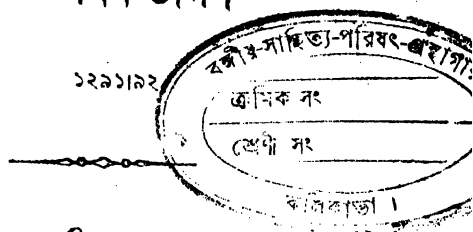 ১২৯১।৯২
বঙ্গীয়-সাহিত্য-পরিষৎ-গ্রন্থাগার
ক্রমিক নং
শ্রেণী সং
কলিকাতা ।